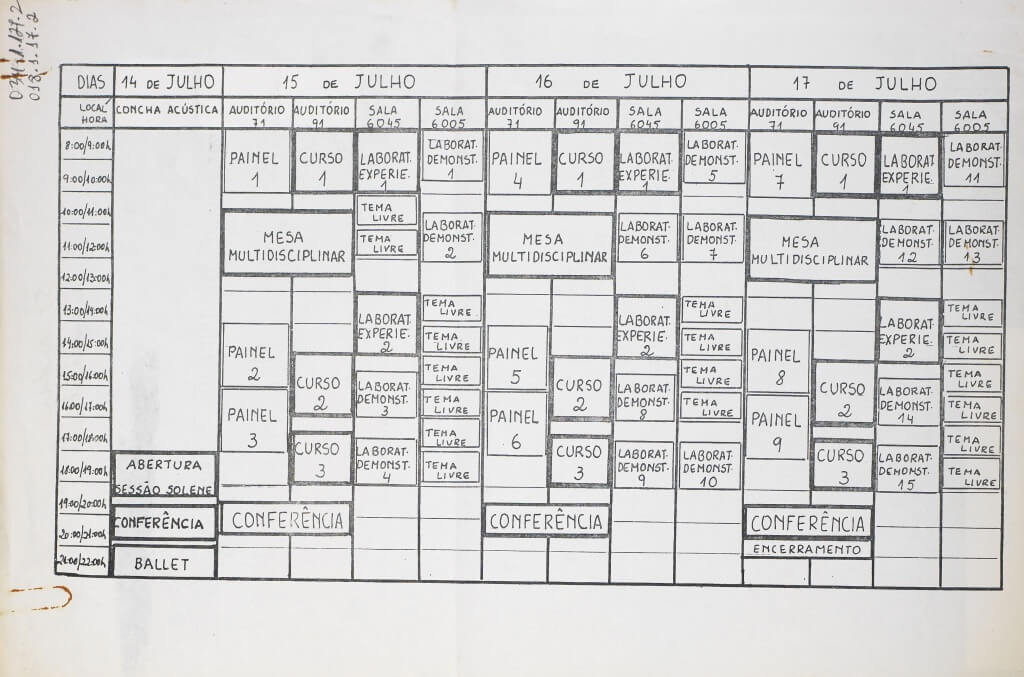 018.1.17.2
DIAS 14 DE JULHO 15 DE JULHO 16 DE JULHO 17 DE JULHO
LOCAL CONCHA ACÚSTICA AUDITÓRIO AUDITÓRIO SALA SALA AUDITÓRIO AUDITÓRIO SALA SALA AUDITÓRIO AUDITÓRIO SALA SALA
HORA 71 91 6045 6005 71 91 6045 6005 71 91 6045 6005
8:00/9:00h PAINEL CURSO LABORAT. LABORAT. PAINEL CURSO LABORAT. LABORAT. PAINEL CURSO LABORAT. LABORAT.
EXPERIE. DEMONST. EXPERIE. DEMONST. EXPERIE. DEMONST.
9:00/10:00h 1 1 1 1 4 1 1 5 7 1 1 11
10:00/11:00h TEMA
LIVRE
MESA LABORAT. MESA LABORAT. LABORAT. MESA LABORAT. LABORAT.
11:00/12:00h MULTIDISCIPLINAR TEMA DEMONST. MULTIDISCIPLINAR DEMONST. DEMONST. MULTIDISCIPLINAR DEMONST. DEMONST.
LIVRE 2 6 7 12 13
12:00/13:00h
13:00/14:00h LABORAT. TEMA LABORAT. TEMA LABORAT. TEMA
LIVRE LIVRE LIVRE
14:00/15:00h EXPERIE. TEMA EXPERIE. TEMA EXPERIE. TEMA
2 LIVRE 2 LIVRE 2 LIVRE
15:00/16:00h PAINEL CURSO LABORAT. TEMA PAINEL CURSO LABORAT. TEMA PAINEL CURSO LABORAT. TEMA
2 2 DEMONST. LIVRE 5 2 DEMONST. LIVRE 8 2 DEMONST. LIVRE
16:00/17:00h 3 TEMA 8 TEMA 14 TEMA
LIVRE LIVRE LIVRE
17:00/18:00h PAINEL CURSO LABORAT. TEMA PAINEL CURSO LABORAT. LABORAT. PAINEL CURSO LABORAT. TEMA
3 3 DEMONST. LIVRE 6 3 DEMONST. DEMONST. 9 3 DEMONST. LIVRE
18:00/19:00h ABERTURA 4 TEMA 9 10 15 TEMA
SESSÃO SOLENE LIVRE LIVRE
19:00/20:00h
CONFERÊNCIA CONFERÊNCIA CONFERÊNCIA CONFERÊNCIA
20:00/21:00h
ENCERRAMENTO
21:00/22:00h BALLET